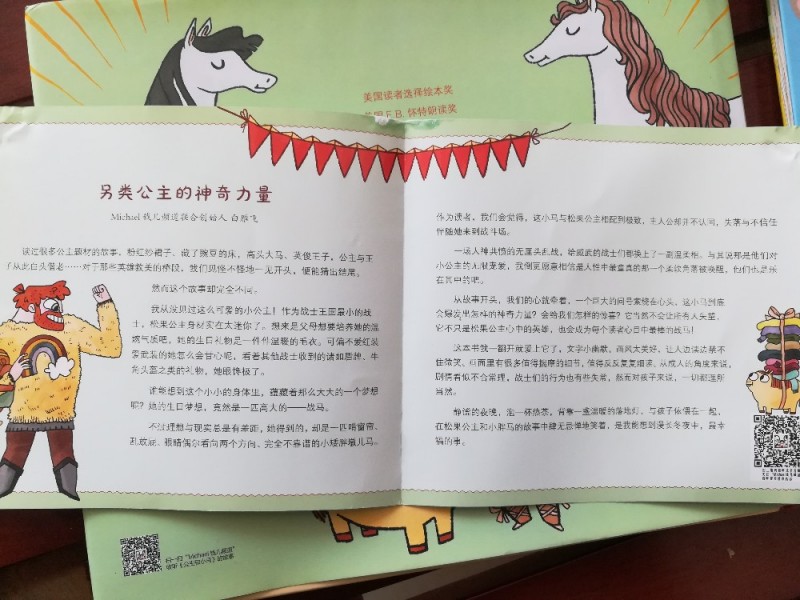 美国读者选择绘本奖
美国 E.B.怀特朗读奖
另类公主的神奇力量
Michael钱儿频道联合创始人 白雅飞
读过很多公主题材的故事,粉红纱裙子、做了豌豆的床,高头大马、英俊王子,公主与王
子从此白头偕老……对于那些英雄救美的桥段,我们见怪不怪地一见开头,便能猜出结尾。
然而这个故事却完全不同。
我从没见过这么可爱的小公主!作为战士王国最小的战
士,松果公主身材实在太迷你了。想来是父母想要培养她的温
婉气质吧,她的生日礼物是一件件温暖的毛衣。可偏不爱红装
爱武装的她怎么会甘心呢,看着其他战士收到的诸如盾牌、牛
角头盔之类的礼物,她眼馋极了。
谁能想到这个小小的身体里,蕴藏着那么大大的一个梦想
呢?她的生日梦想,竟然是一匹高大的——战马。
不过理想与现实总是有差距,她得到的,却是一匹啃窗帘、
乱放屁、眼睛偶尔看向两个方向、完全不靠谱的小矮胖墩儿马。
作为读者,我们会觉得,这小马与松果公主相配到极致,主人公却并不认同,失落与不信任
伴随她来到战斗场。
一场人神共愤的无厘头乱战,给威武的战士们都换上了一副温柔相。与其说那是他们对
小公主的无限宠爱,我倒更愿意相信是人性中最童真的那一个柔软角落被唤醒,他们也是乐
在其中的吧。
从故事开头,我们的心就牵着,一个巨大的问号萦绕在心头。这小马到底
会爆发出怎样的神奇力量?会给我们怎样的惊喜?它当然不会让所有人失望,
它不只是松果公主心中的英雄,也会成为每个读者心目中最棒的战马!
这本书我一翻开就爱上它了,文字小幽默,画风太美好,让人边读边禁不
住微笑。画面里有很多值得揣摩的细节,值得反反复复细读。从成人的角度来说,
剧情看似不合常理,战士们的行为也有些失常,然而对孩子来说,一切都理所
当然。
静谧的夜晚,泡一杯热茶,背靠一盏温暖的落地灯,与孩子依偎在一起,
在松果公主和小胖马的故事中肆无忌惮地笑着,是我能想到漫长冬夜中,最幸
福的事。
扫一扫“Michael钱儿频道”